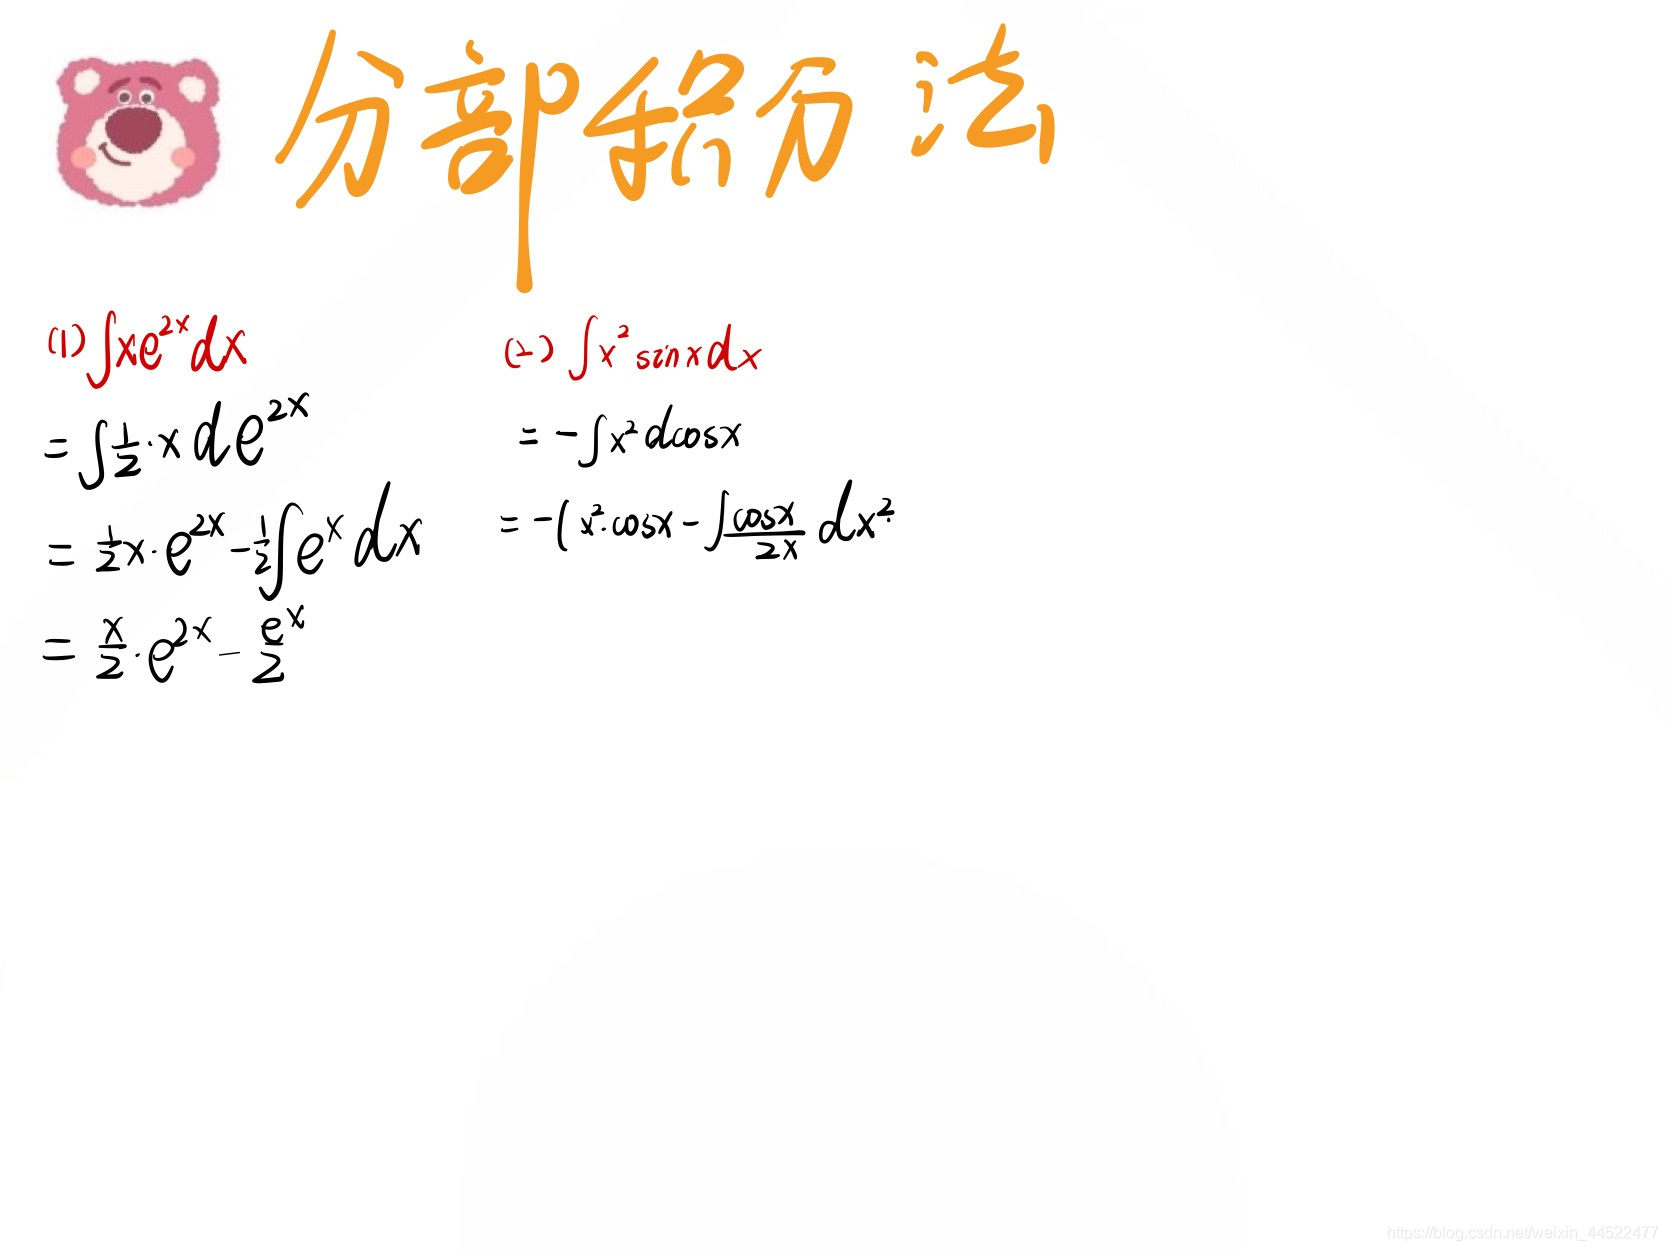 分部积分法
(1) ∫xe^{2x}dx
= ∫\frac{1}{2}·x de^{2x}
= \frac{1}{2}x·e^{2x} - \frac{1}{2}∫e^{x}dx
= \frac{x}{2}·e^{2x} - \frac{e^{x}}{2}
(2) ∫x^{2}sinxdx
= -∫x^{2}dcosx
= -(x^{2}·cosx - ∫\frac{cosx}{2x}dx^{2}
https://blog.csdn.net/weixin_44522477